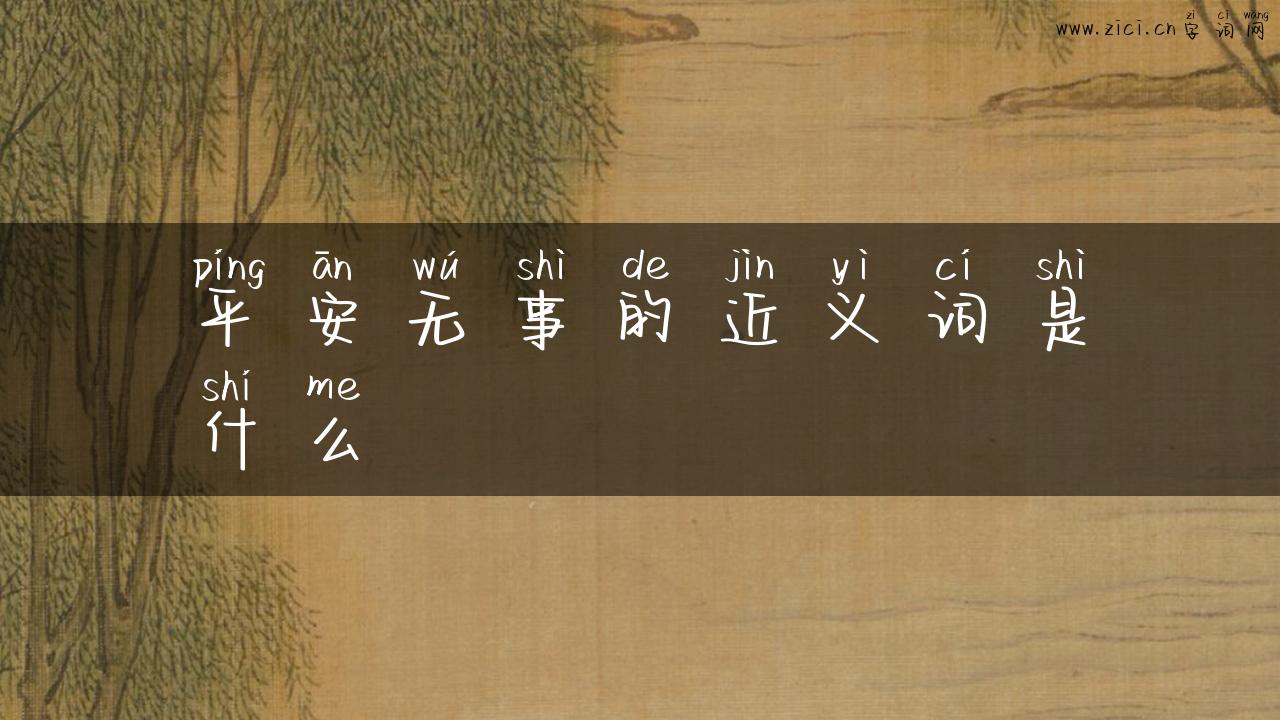 zì cí wǎng
www.zici.cn 字词网
píng ān wú shì de jìn yì cí shì
平安无事的近义词是
shí me
什么